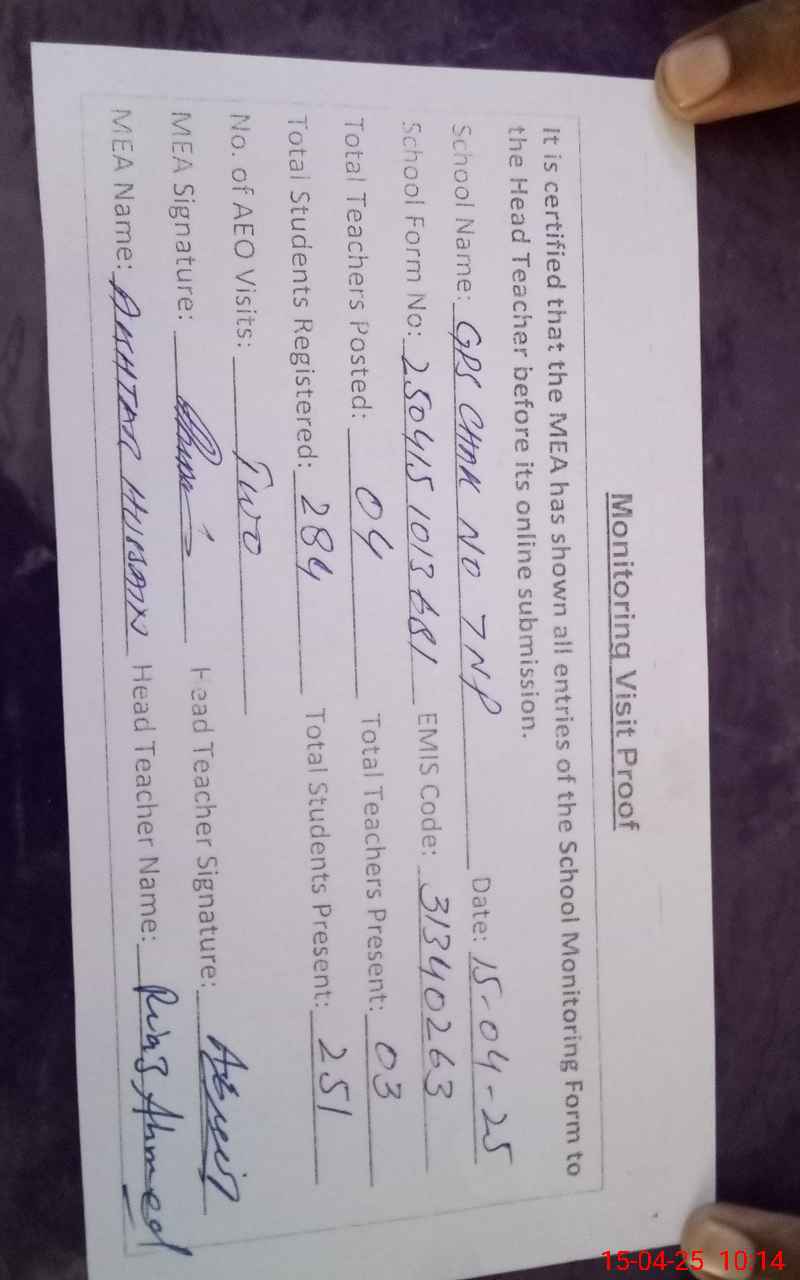 Monitoring Visit Proof
It is certified that the MEA has shown all entries of the School Monitoring Form to
the Head Teacher before its online submission.
School Name: GPS CHAK NO 7 NP Date: 15-04-25
School Form No: 250415 1013681 EMIS Code: 31340263
Total Teachers Posted: 04 Total Teachers Present: 03
Total Students Registered: 284 Total Students Present: 251
No. of AEO Visits: Two
MEA Signature: Head Teacher Signature:
MEA Name: AKHTAR HUSSAIN Head Teacher Name: Ahmed
15-04-25 10:14